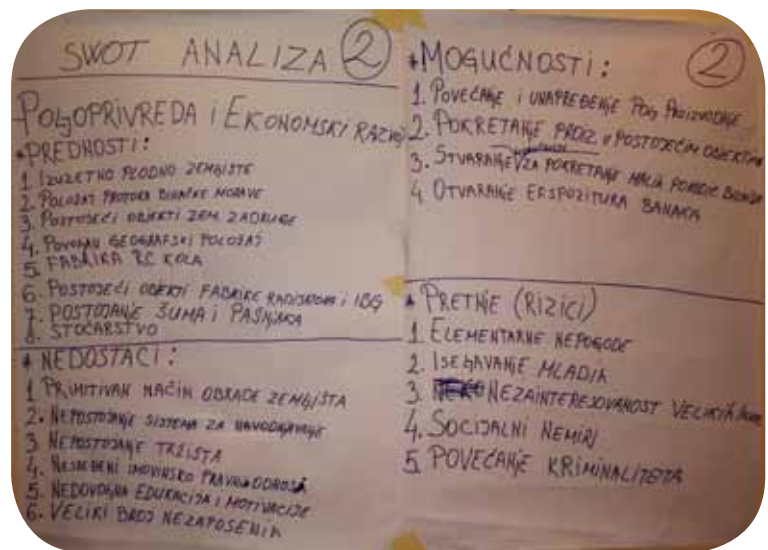 SWOT ANALIZA 2
POLJOPRIVREDA i EKONOMSKI RAZVOJ
*PREDNOSTI:
1. IZUZETNO PLODNO ZEMLJIŠTE
2. POLOŽAJ PROTOKA BINAČKE MORAVE
3. POSTOJEĆI OBJEKTI ZEM ZADRUGE
4. POVOLJAN GEOGRAFSKI POLOŽAJ
5. FABRIKA KOLA
6. POSTOJEĆI OBJEKTI FABRIKE RADIJATORA i
7. POSTOJANJE ŠUMA i PAŠNJAKA
8. STOČARSTVO
* NEDOSTACI:
1. PRIMITIVAN NAČIN OBRADE ZEMLJIŠTA
2. NEPOSTOJANJE SISTEMA ZA NAVODNJAVANJE
3. NEPOSTOJANJE TRŽIŠTA
4. IMOVINSKO PRAVNA ODNOSA
5. NEDOVOLJNA EDUKACIJA I MOTIVACIJE
6. VELIKI BROJ NEZAPOSENIH
*MOGUĆNOSTI: 2
1. POVEĆANJE i UNAPREĐENJE POLJ PROIZVODNJE
2. POKRETANJE PROIZ U POSTOJEĆIM OBJEKTIMA
3. STVARANJE ZA POKRETANJE MALIH PORODIČ BIZNISA
4. OTVARANJE EKSPOZITURA BANAKA
* PRETNJE (RIZICI)
1. ELEMENTARNE NEPOGODE
2. ISELJAVANJE MLADIH
3. NEZAINTERESOVANOST VELIKIH
4. SOCIJALNI NEMIRI
5. POVEĆANJE KRIMINALITETA